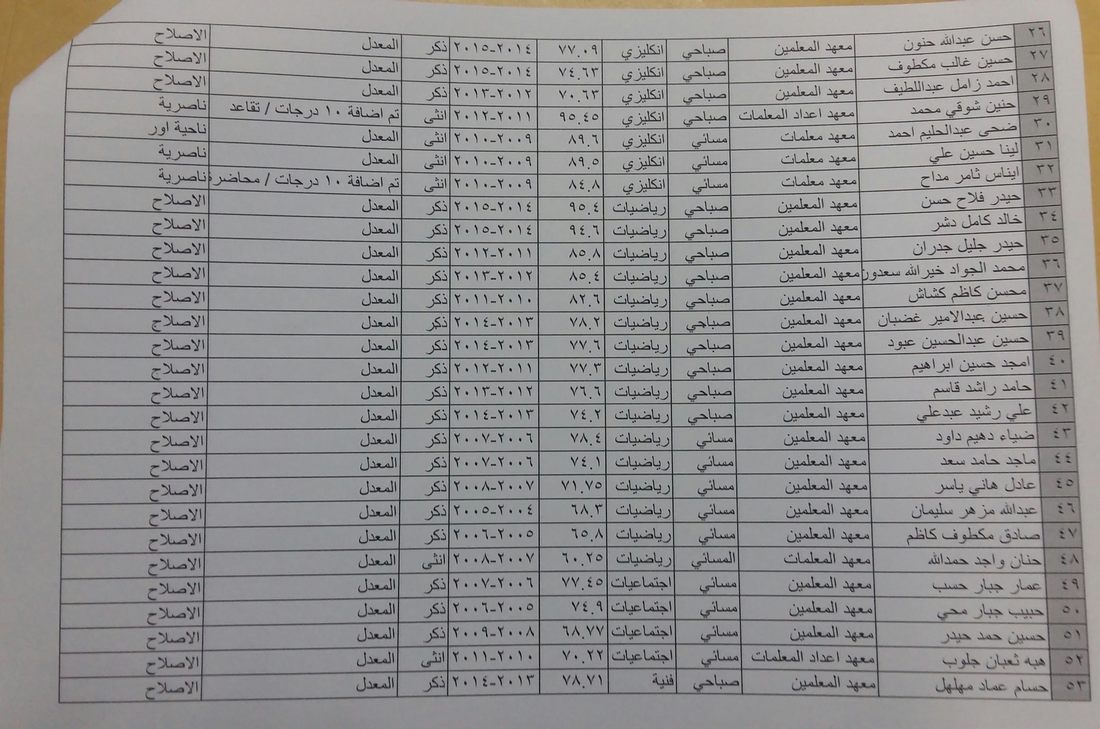 ٢٦ حسن عبدالله حنون معهد المعلمين صباحي انكليزي ٧٧.٠٩ ٢٠١٤-٢٠١٥ ذكر المعدل الاصلاح
٢٧ حسين غالب مكطوف معهد المعلمين صباحي انكليزي ٧٤.٦٣ ٢٠١٤-٢٠١٥ ذكر المعدل الاصلاح
٢٨ احمد زامل عبداللطيف معهد المعلمين صباحي انكليزي ٧٠.٦٣ ٢٠١٢-٢٠١٣ ذكر المعدل الاصلاح
٢٩ حنين شوقي محمد معهد اعداد المعلمات صباحي انكليزي ٩٥.٤٥ ٢٠١١-٢٠١٢ انثى تم اضافة ١٠ درجات / تقاعد ناصرية
٣٠ ضحى عبدالحليم احمد معهد معلمات مسائي انكليزي ٨٩.٦ ٢٠٠٩-٢٠١٠ انثى المعدل ناحية اور
٣١ لينا حسين علي معهد معلمات مسائي انكليزي ٨٩.٥ ٢٠٠٩-٢٠١٠ انثى المعدل ناصرية
٣٢ ايناس ثامر مداح معهد معلمات مسائي انكليزي ٨٤.٨ ٢٠٠٩-٢٠١٠ انثى تم اضافة ١٠ درجات / محاضرة ناصرية
٣٣ حيدر فلاح حسن معهد المعلمين صباحي رياضيات ٩٥.٤ ٢٠١٤-٢٠١٥ ذكر المعدل الاصلاح
٣٤ خالد كامل دشر معهد المعلمين صباحي رياضيات ٩٤.٦ ٢٠١٤-٢٠١٥ ذكر المعدل الاصلاح
٣٥ حيدر جليل جدران معهد المعلمين صباحي رياضيات ٨٥.٨ ٢٠١١-٢٠١٢ ذكر المعدل الاصلاح
٣٦ محمد الجواد خيرالله سعدون معهد المعلمين صباحي رياضيات ٨٥.٤ ٢٠١٢-٢٠١٣ ذكر المعدل الاصلاح
٣٧ محسن كاظم كشاش معهد المعلمين صباحي رياضيات ٨٢.٦ ٢٠١٠-٢٠١١ ذكر المعدل الاصلاح
٣٨ حسين عبدالامير غضبان معهد المعلمين صباحي رياضيات ٧٨.٢ ٢٠١٣-٢٠١٤ ذكر المعدل الاصلاح
٣٩ حسين عبدالحسين عبود معهد المعلمين صباحي رياضيات ٧٧.٦ ٢٠١٣-٢٠١٤ ذكر المعدل الاصلاح
٤٠ امجد حسين ابراهيم معهد المعلمين صباحي رياضيات ٧٧.٣ ٢٠١١-٢٠١٢ ذكر المعدل الاصلاح
٤١ حامد راشد قاسم معهد المعلمين صباحي رياضيات ٧٦.٦ ٢٠١٢-٢٠١٣ ذكر المعدل الاصلاح
٤٢ علي رشيد عبدعلي معهد المعلمين صباحي رياضيات ٧٤.٢ ٢٠١٣-٢٠١٤ ذكر المعدل الاصلاح
٤٣ ضياء دهيم داود معهد المعلمين مسائي رياضيات ٧٨.٤ ٢٠٠٦-٢٠٠٧ ذكر المعدل الاصلاح
٤٤ ماجد حامد سعد معهد المعلمين مسائي رياضيات ٧٤.١ ٢٠٠٦-٢٠٠٧ ذكر المعدل الاصلاح
٤٥ عادل هاني ياسر معهد المعلمين مسائي رياضيات ٧١.٧٥ ٢٠٠٧-٢٠٠٨ ذكر المعدل الاصلاح
٤٦ عبدالله مزهر سليمان معهد المعلمين مسائي رياضيات ٦٨.٣ ٢٠٠٤-٢٠٠٥ ذكر المعدل الاصلاح
٤٧ صادق مكطوف كاظم معهد المعلمين مسائي رياضيات ٦٥.٨ ٢٠٠٥-٢٠٠٦ ذكر المعدل الاصلاح
٤٨ حنان واجد حمدالله معهد المعلمات المسائي رياضيات ٦٠.٢٥ ٢٠٠٧-٢٠٠٨ انثى المعدل الاصلاح
٤٩ عمار جبار حسب معهد المعلمين مسائي اجتماعيات ٧٧.٤٥ ٢٠٠٦-٢٠٠٧ ذكر المعدل الاصلاح
٥٠ حبيب جبار محي معهد المعلمين مسائي اجتماعيات ٧٤.٩ ٢٠٠٥-٢٠٠٦ ذكر المعدل الاصلاح
٥١ حسين حمد حيدر معهد المعلمين مسائي اجتماعيات ٦٨.٧٧ ٢٠٠٨-٢٠٠٩ ذكر المعدل الاصلاح
٥٢ هبه ثعبان جلوب معهد اعداد المعلمات مسائي اجتماعيات ٧٠.٢٢ ٢٠١٠-٢٠١١ انثى المعدل الاصلاح
٥٣ حسام عماد مهلهل معهد المعلمين صباحي فنية ٧٨.٧١ ٢٠١٣-٢٠١٤ ذكر المعدل الاصلاح